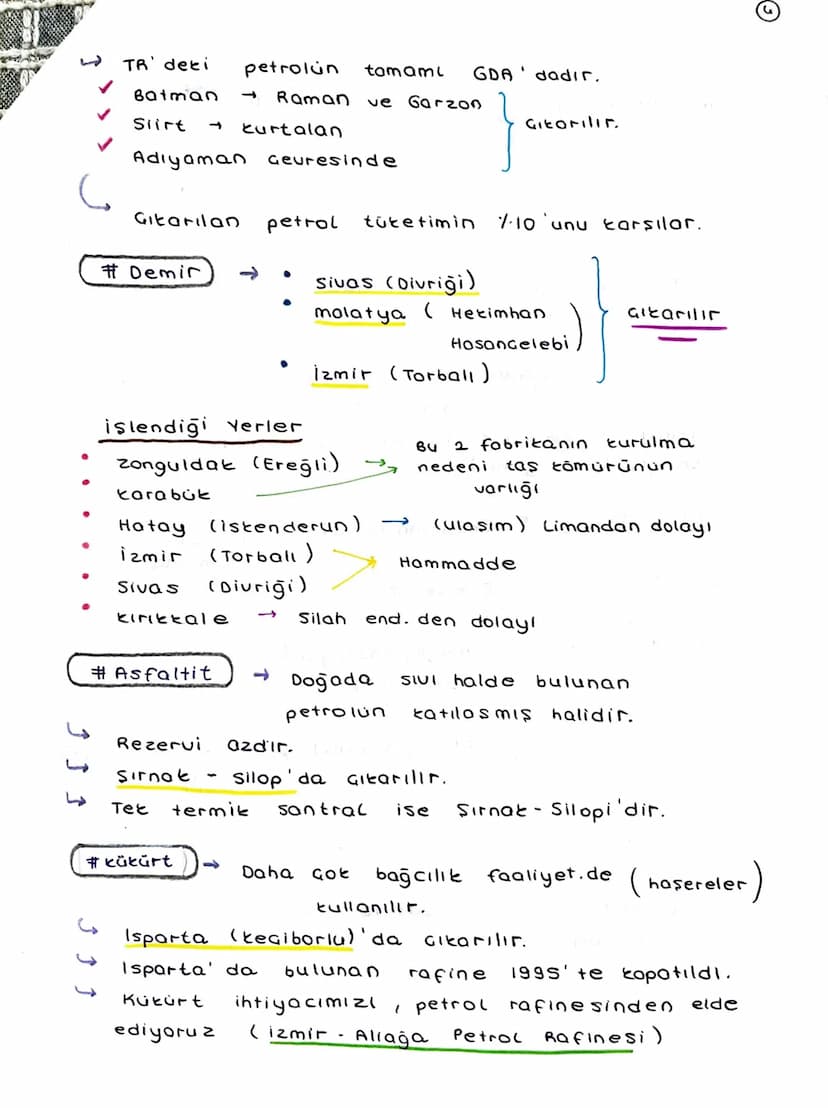 4
↳ TR'deki petrolün tamamı GDA'dadır.
✓ Batman → Raman ve Garzan
✓ Siirt → Kurtalan } Çıkarılır.
✓ Adıyaman Çevresinde
Çıkarılan petrol tüketimin %10'unu karşılar.
# Demir → • Sivas (Divriği)
• Malatya ( Hekimhan } Çıkarılır
Hasançelebi )
• İzmir (Torbalı)
İşlendiği Yerler
• Zonguldak (Ereğli) → Bu 2 fabrikanın kurulma
• Karabük → nedeni taş kömürünün
varlığı
• Hatay (İskenderun) → (ulaşım) Limandan dolayı
• İzmir (Torbalı) → Hammadde
• Sivas (Divriği)
• Kırıkkale → Silah end. den dolayı
# Asfaltit → Doğada sıvı halde bulunan
petrolün katılaşmış halidir.
↳ Rezervi azdır.
↳ Şırnak - Silop'da çıkarılır.
↳ Tek termik santral ise Şırnak - Silopi'dir.
# Kükürt → Daha çok bağcılık faaliyet.de (haşereler)
kullanılır.
↳ Isparta (Keçiborlu)'da çıkarılır.
↳ Isparta'da bulunan rafine 1995'te kapatıldı.
↳ Kükürt ihtiyacımızı, petrol rafinesinden elde
ediyoruz (İzmir - Aliağa Petrol Rafinesi)